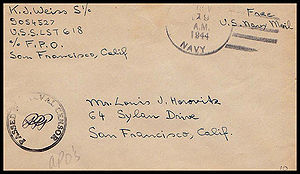 K. J. Weiss S 1/c
9054527
U.S.S. LST 618
c/o F.P.O.
San Francisco, Calif
29
1944
NAVY
Free
U.S. Navy Mail
Mr. Louis J. Horowitz
64 Sylan Drive
San Francisco, Calif
PASSED NAVAL CENSOR